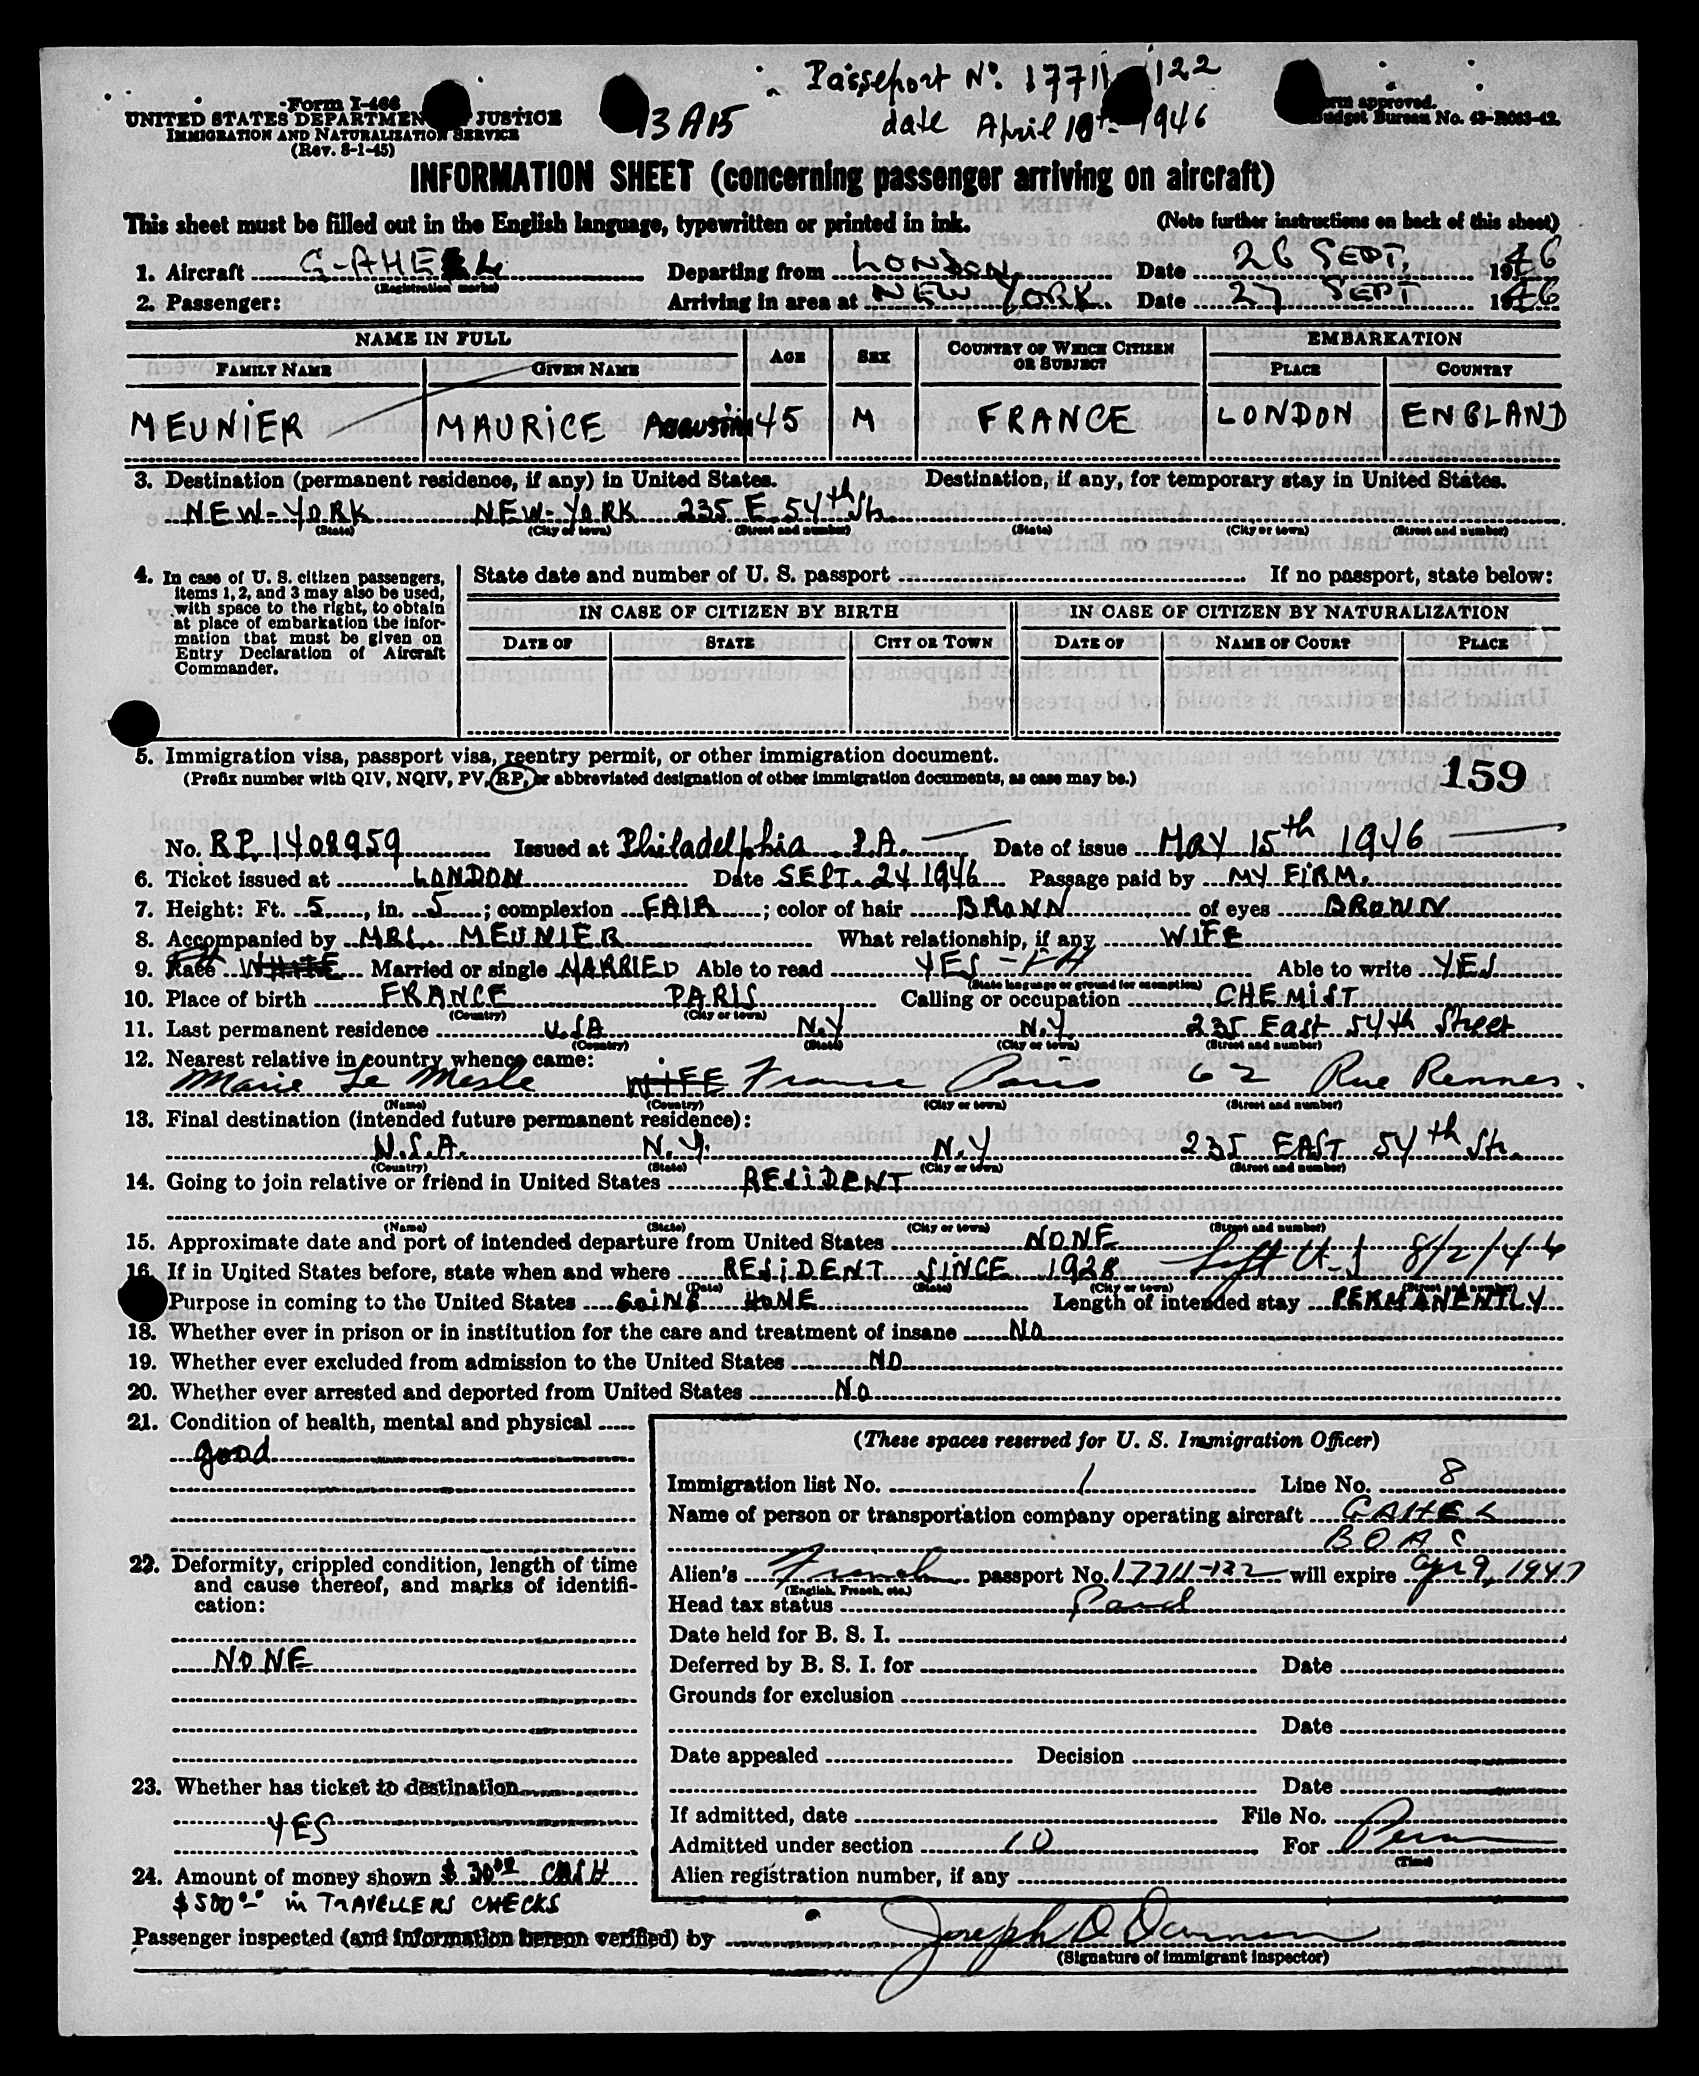 Passeport No. 17711 122
Form I-466
UNITED STATES DEPARTMEN JUSTICE
IMMIGRATION AND NATURALIZATION SERVICE
(Rev. 8-1-45)
3A15
date April 10th 1946
orm approved.
Budget Bureau No. 43-R063-42.
INFORMATION SHEET (concerning passenger arriving on aircraft)
This sheet must be filled out in the English language, typewritten or printed in ink. (Note further instructions on back of this sheet)
1. Aircraft G-AHEL Departing from LONDON Date 26 SEPT. 1946
(Registration marks)
2. Passenger: Arriving in area at NEW YORK Date 27 SEPT 1946
NAME IN FULL AGE SEX COUNTRY OF WHICH CITIZEN OR SUBJECT EMBARKATION
FAMILY NAME GIVEN NAME PLACE COUNTRY
MEUNIER MAURICE AUGUSTIN 45 M FRANCE LONDON ENGLAND
3. Destination (permanent residence, if any) in United States. Destination, if any, for temporary stay in United States.
NEW-YORK NEW-YORK 235 E. 54th St.
(State) (City or town) (Street and number) (State) (City or town) (Street and number)
4. In case of U. S. citizen passengers, items 1, 2, and 3 may also be used, with space to the right, to obtain at place of embarkation the information that must be given on Entry Declaration of Aircraft Commander.
State date and number of U. S. passport If no passport, state below:
IN CASE OF CITIZEN BY BIRTH IN CASE OF CITIZEN BY NATURALIZATION
DATE OF STATE CITY OR TOWN DATE OF NAME OF COURT PLACE
5. Immigration visa, passport visa, reentry permit, or other immigration document.
(Prefix number with QIV, NQIV, PV, RP, or abbreviated designation of other immigration documents, as case may be.)
159
No. RP. 1408959 Issued at Philadelphia P.A. Date of issue MAY 15th 1946
6. Ticket issued at LONDON Date SEPT. 24 1946 Passage paid by MY FIRM.
7. Height: Ft. 5, in. 5; complexion FAIR; color of hair BROWN of eyes BROWN
8. Accompanied by MRS. MEUNIER What relationship, if any WIFE
9. Race WHITE Married or single MARRIED Able to read YES - FH Able to write YES
(State language or ground for exemption)
10. Place of birth FRANCE PARIS Calling or occupation CHEMIST
(Country) (City or town)
11. Last permanent residence U.S.A N.Y N.Y. 235 East 54th Street
(Country) (State) (City or town) (Street and number)
12. Nearest relative in country whence came:
Marie Le Mesle WIFE France Paris 62 Rue Rennes.
(Name) (Country) (City or town) (Street and number)
13. Final destination (intended future permanent residence):
U.S.A. N.Y. N.Y 235 EAST 54th St.
(Country) (State) (City or town) (Street and number)
14. Going to join relative or friend in United States RESIDENT
(Name) (State) (City or town) (Street and number)
15. Approximate date and port of intended departure from United States NONE
16. If in United States before, state when and where RESIDENT SINCE 1928 Left U.S 8/2/46
(Date) (State) (City or town) (Street and number)
Purpose in coming to the United States GOING HOME Length of intended stay PERMANENTLY
18. Whether ever in prison or in institution for the care and treatment of insane NO
19. Whether ever excluded from admission to the United States NO
20. Whether ever arrested and deported from United States NO
21. Condition of health, mental and physical
good
22. Deformity, crippled condition, length of time and cause thereof, and marks of identification:
NONE
23. Whether has ticket to destination
YES
24. Amount of money shown $ 30.00 CASH
$500.00 in TRAVELLERS CHECKS
(These spaces reserved for U. S. Immigration Officer)
Immigration list No. 1 Line No. 8
Name of person or transportation company operating aircraft GAHEL
BOAC
Alien's French passport No. 17711-122 will expire Apr 9, 1947
(English, French, etc.)
Head tax status Paid
Date held for B. S. I.
Deferred by B. S. I. for Date
Grounds for exclusion
Date
Date appealed Decision
Date
If admitted, date File No.
Admitted under section 10 For Perm
(Time)
Alien registration number, if any
Passenger inspected (and information hereon verified) by Joseph D
(Signature of immigrant inspector)